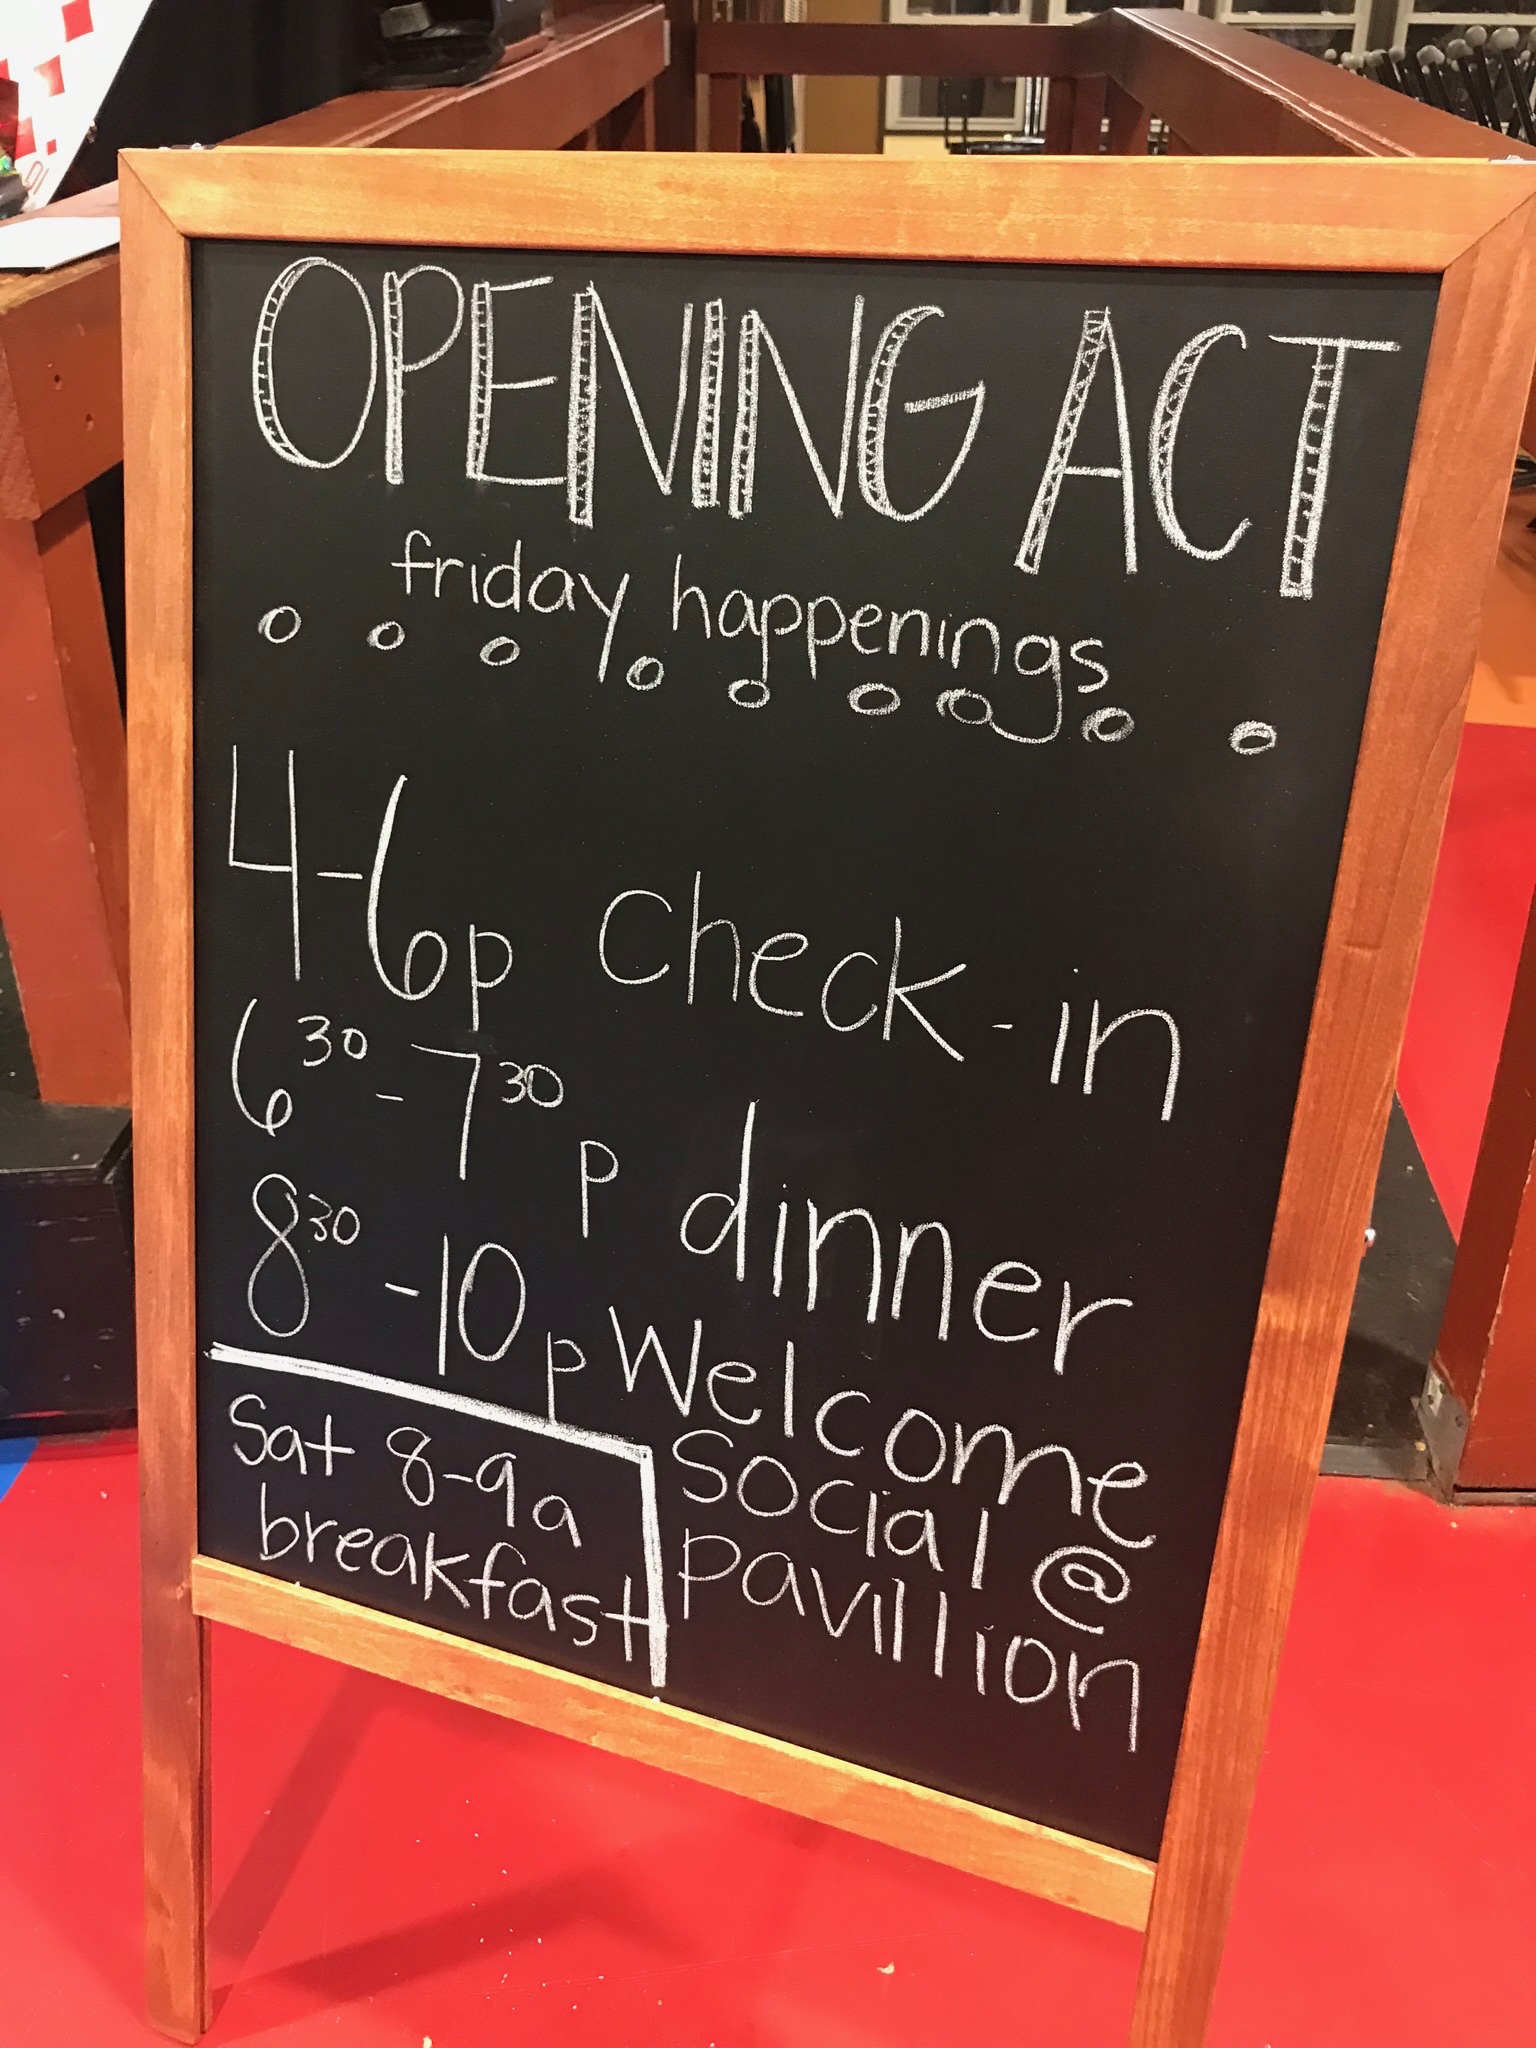 OPENING ACT
friday happenings
4-6p check-in
6³⁰-7³⁰ p dinner
8³⁰-10p Welcome
social @
pavillion
Sat 8-9a
breakfast